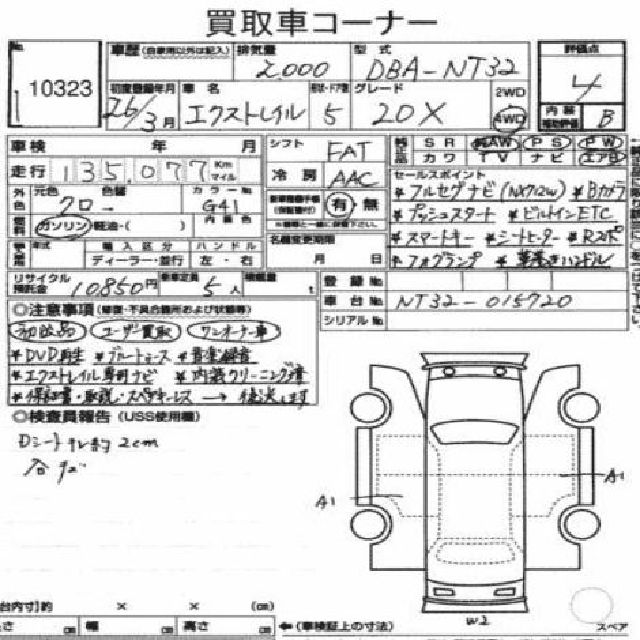 買取車コーナー
No. 10323
車歴 (自家用以外は記入) 排気量 2,000 型式 DBA-NT32 評価点 4
初度登録年月 26/3月 車名 エクストレイル 形状・ドア数 5 グレード 20X 2WD 4WD
内装 補助評価 B
車検 年 月 シフト FAT SR AW PS PW
走行 135,077 Km マイル 冷房 AAC カワ TV ナビ エアB
外色 元色 クロ 色替 カラーNo. G41 有・無
セールスポイント
* フルセグナビ (NX712W) * Bカメラ
* プッシュスタート * ビルトインETC
* スマートキー * シートヒーター * Rスポ
* フォグランプ * 革巻きハンドル
燃料 ガソリン・軽油・( ) 内装色
年式 輸入区分 ハンドル 名義変更期限
ディーラー・並行 左・右 月 日
リサイクル預託金 10850円 乗車定員 5人 積載量 t
登録No.
車台No. NT32-015720
シリアルNo.
◎注意事項 (修復・不具合箇所および状態等)
初出品 ユーザー買取 ワンオーナー車
* DVD再生 * ブルートゥース * 音楽録音
* エクストレイル専用ナビ * 内装クリーニング済
* 保証書・取説・スペアキーレス → 後送します
◎検査員報告 (USS使用欄)
Dシートスレ 約2cm
A1
A1
W2
台内寸)約 × × (cm)
さ cm 幅 cm 高さ cm ←(車検証上の寸法)
スペア